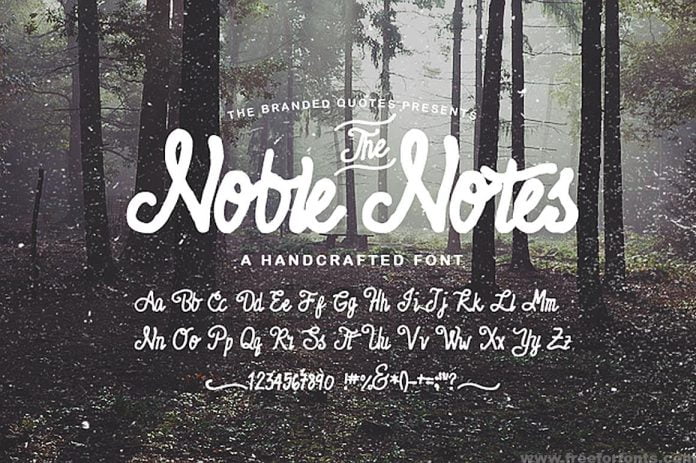 THE BRANDED QUOTES PRESENTS
The
Noble Notes
A HANDCRAFTED FONT
Aa Bb Cc Dd Ee Ff Gg Hh Ii Jj Kk Ll Mm
Nn Oo Pp Qq Rr Ss Tt Uu Vv Ww Xx Yy Zz
1234567890 !#%&*()-+=;"?
www.freeforfonts.com